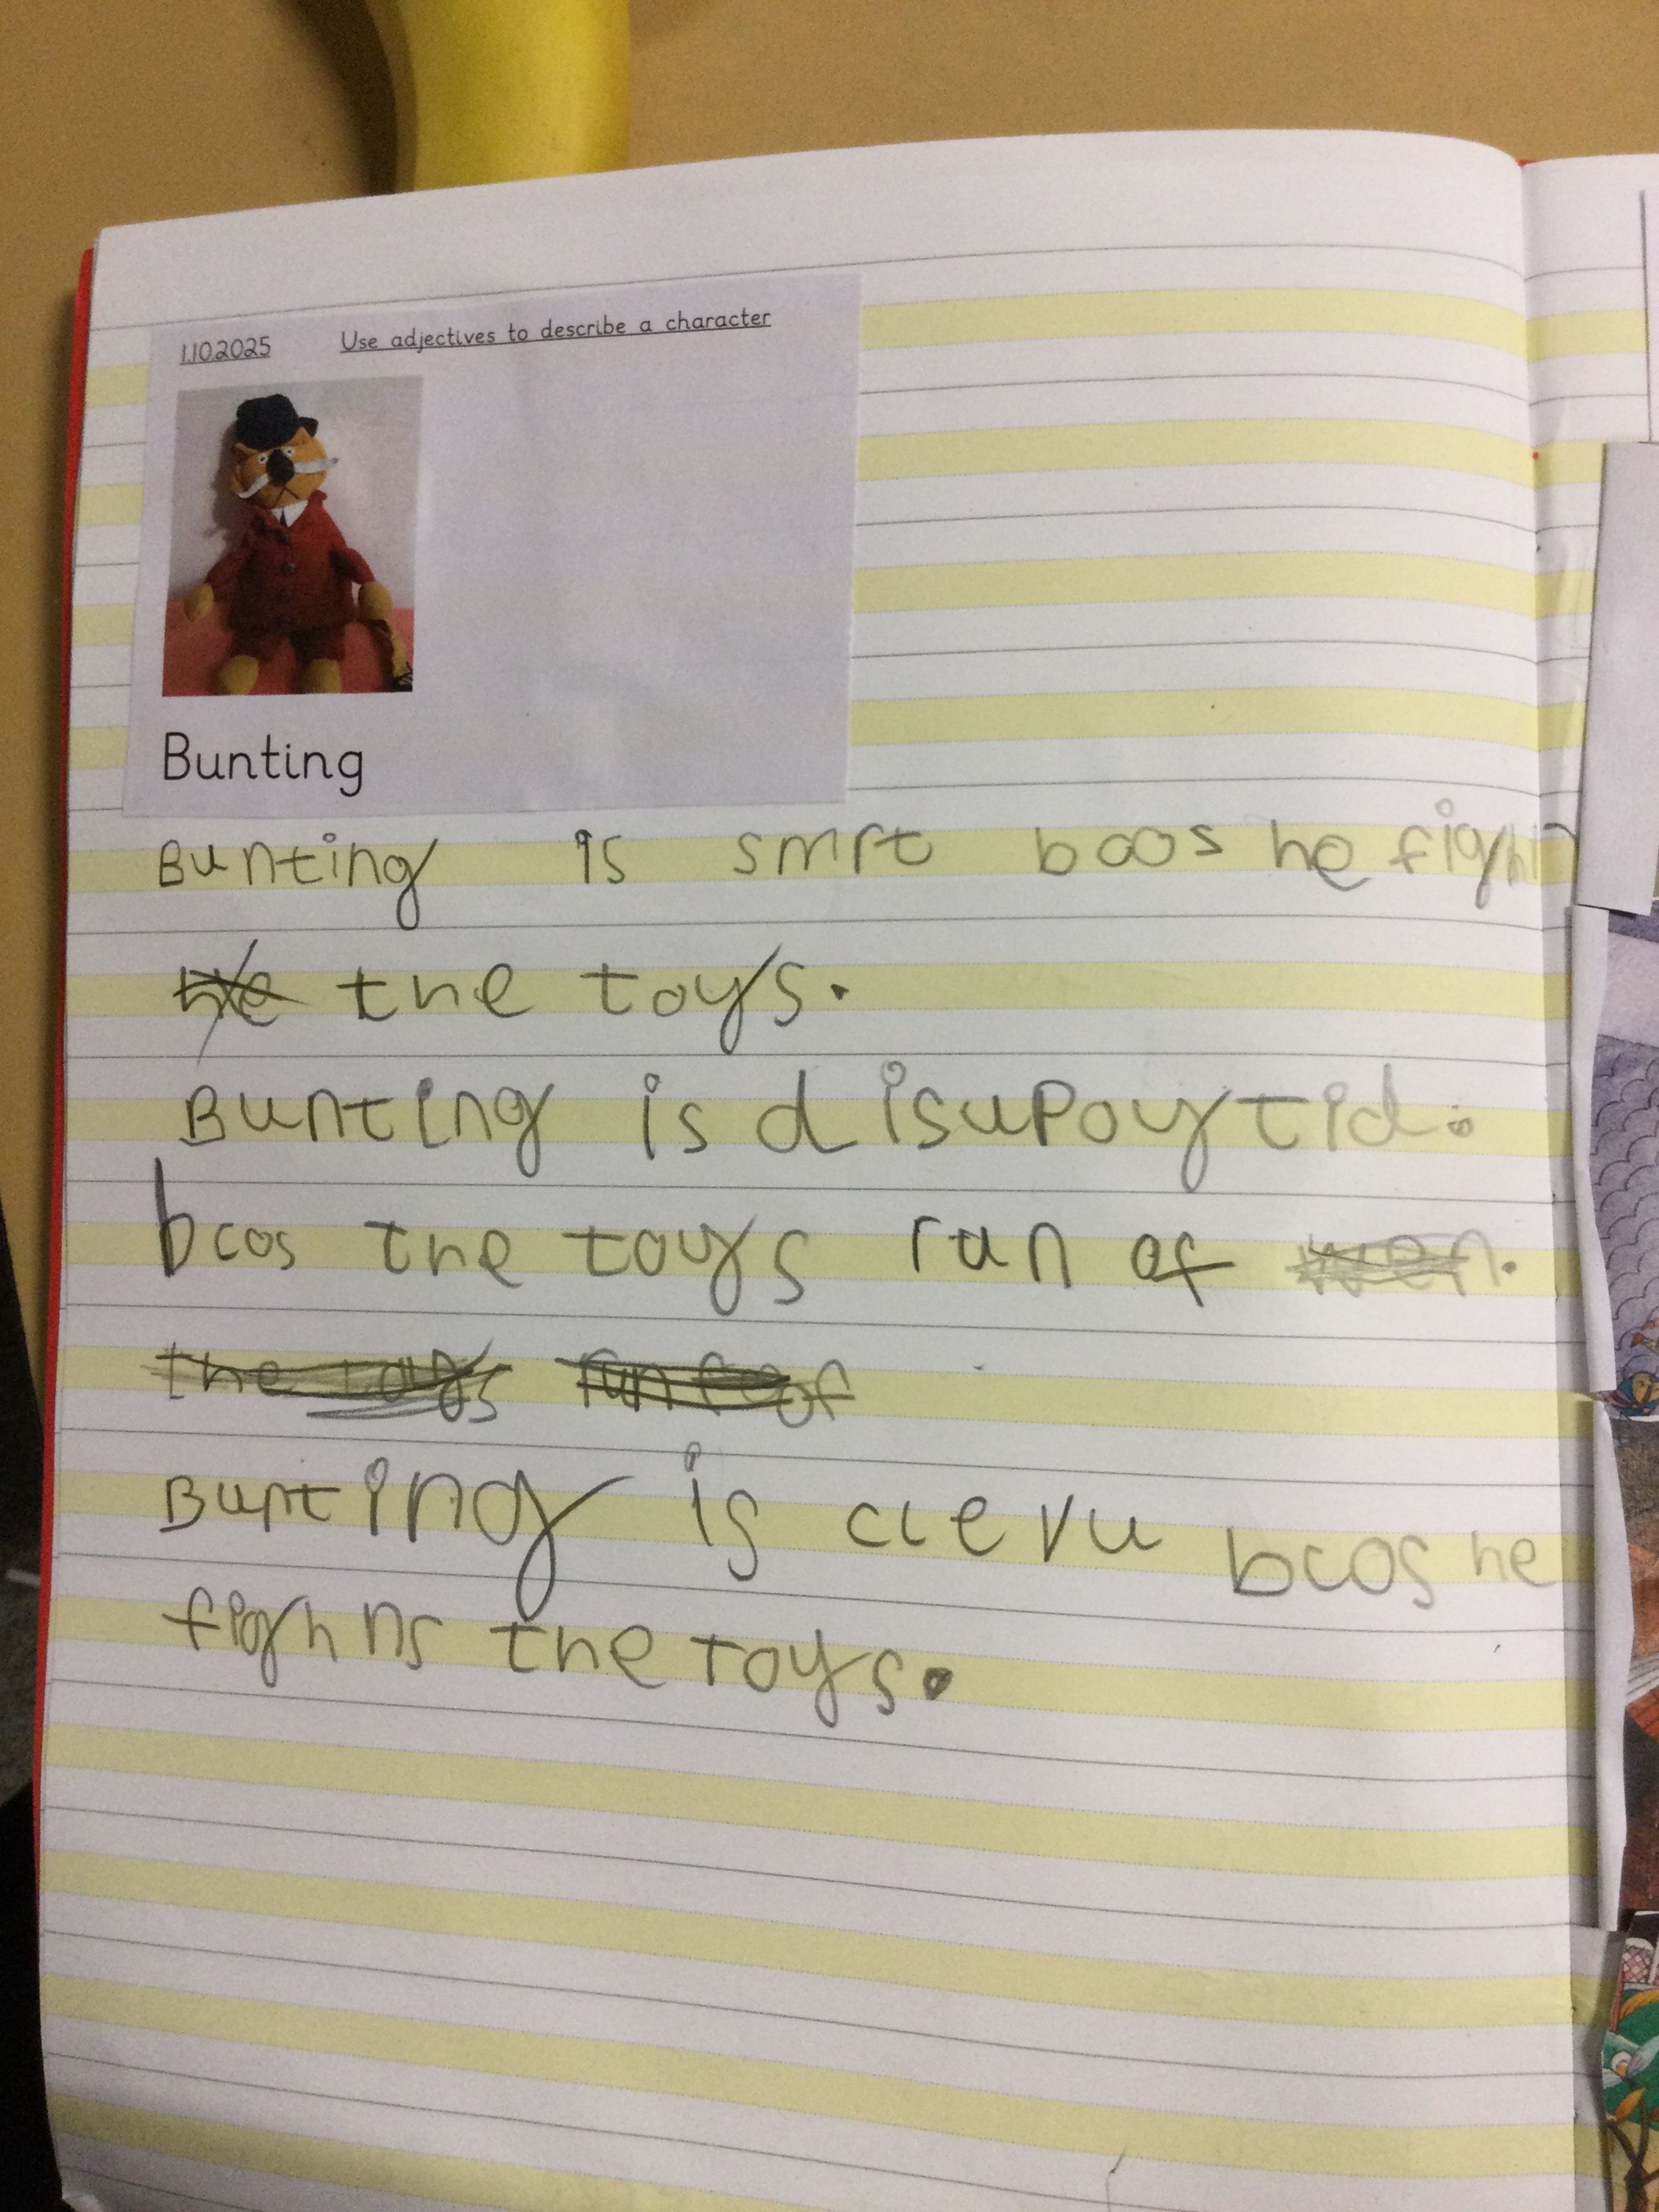 1.10.2025 Use adjectives to describe a character
Bunting
Bunting is smrt bcos he
the toys.
Bunting is disupoytid.
bcos the toys run of
Bunting is clevu bcos he
fighns the toys.